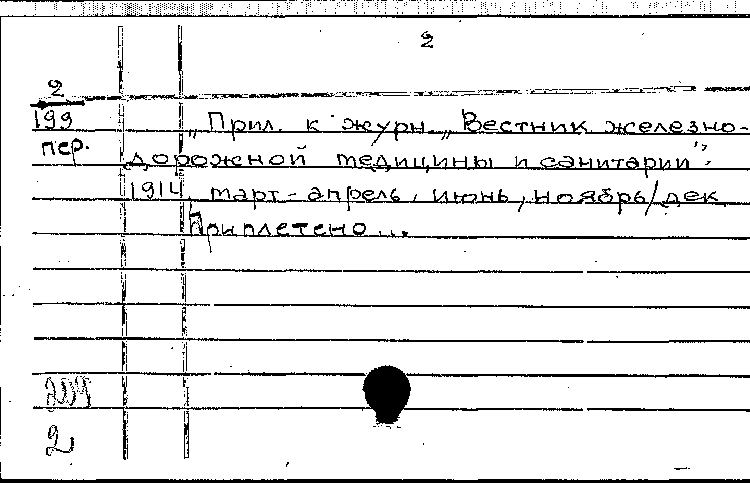 2
2
199
пер.
„Прил. к журн. „Вестник железно-
дорожной медицины и санитарии".
1914, март-апрель, июнь, ноябрь/дек
Приплетено...
2